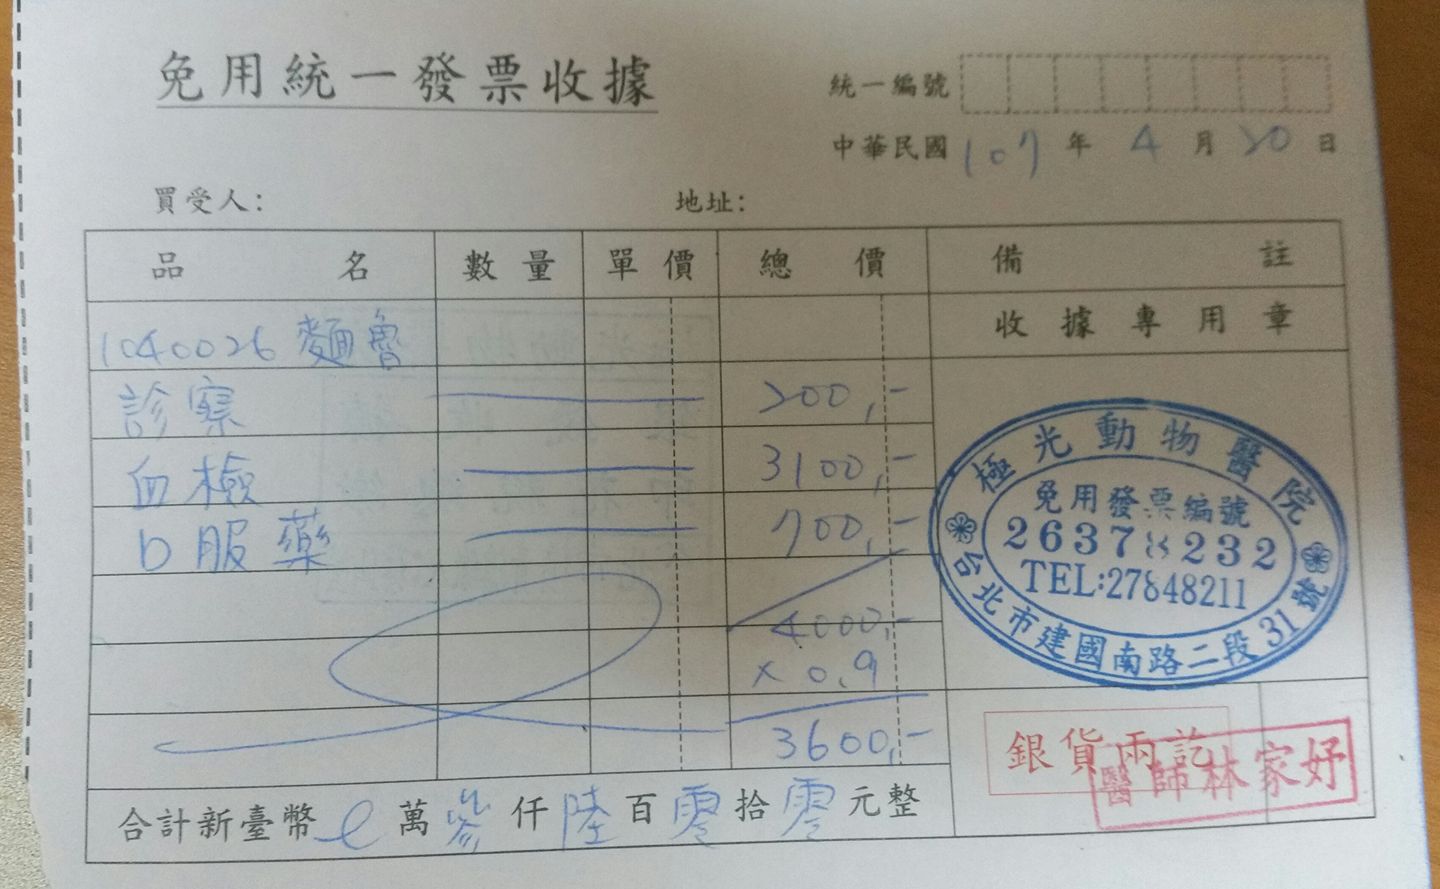 免用統一發票收據
統一編號
中華民國 107 年 4 月 20 日
買受人： 地址：
品名 數量 單價 總價 備註
收據專用章
1040026 麵魯
診察 200,-
血檢 3100,-
口服藥 700,-
4000,-
x 0.9
3600,-
合計新臺幣 萬 參 仟 陸 百 零 拾 零 元整
極光動物醫院
免用發票編號
2637 232
TEL:27848211
台北市建國南路二段31號
銀貨兩訖
醫師林家妤